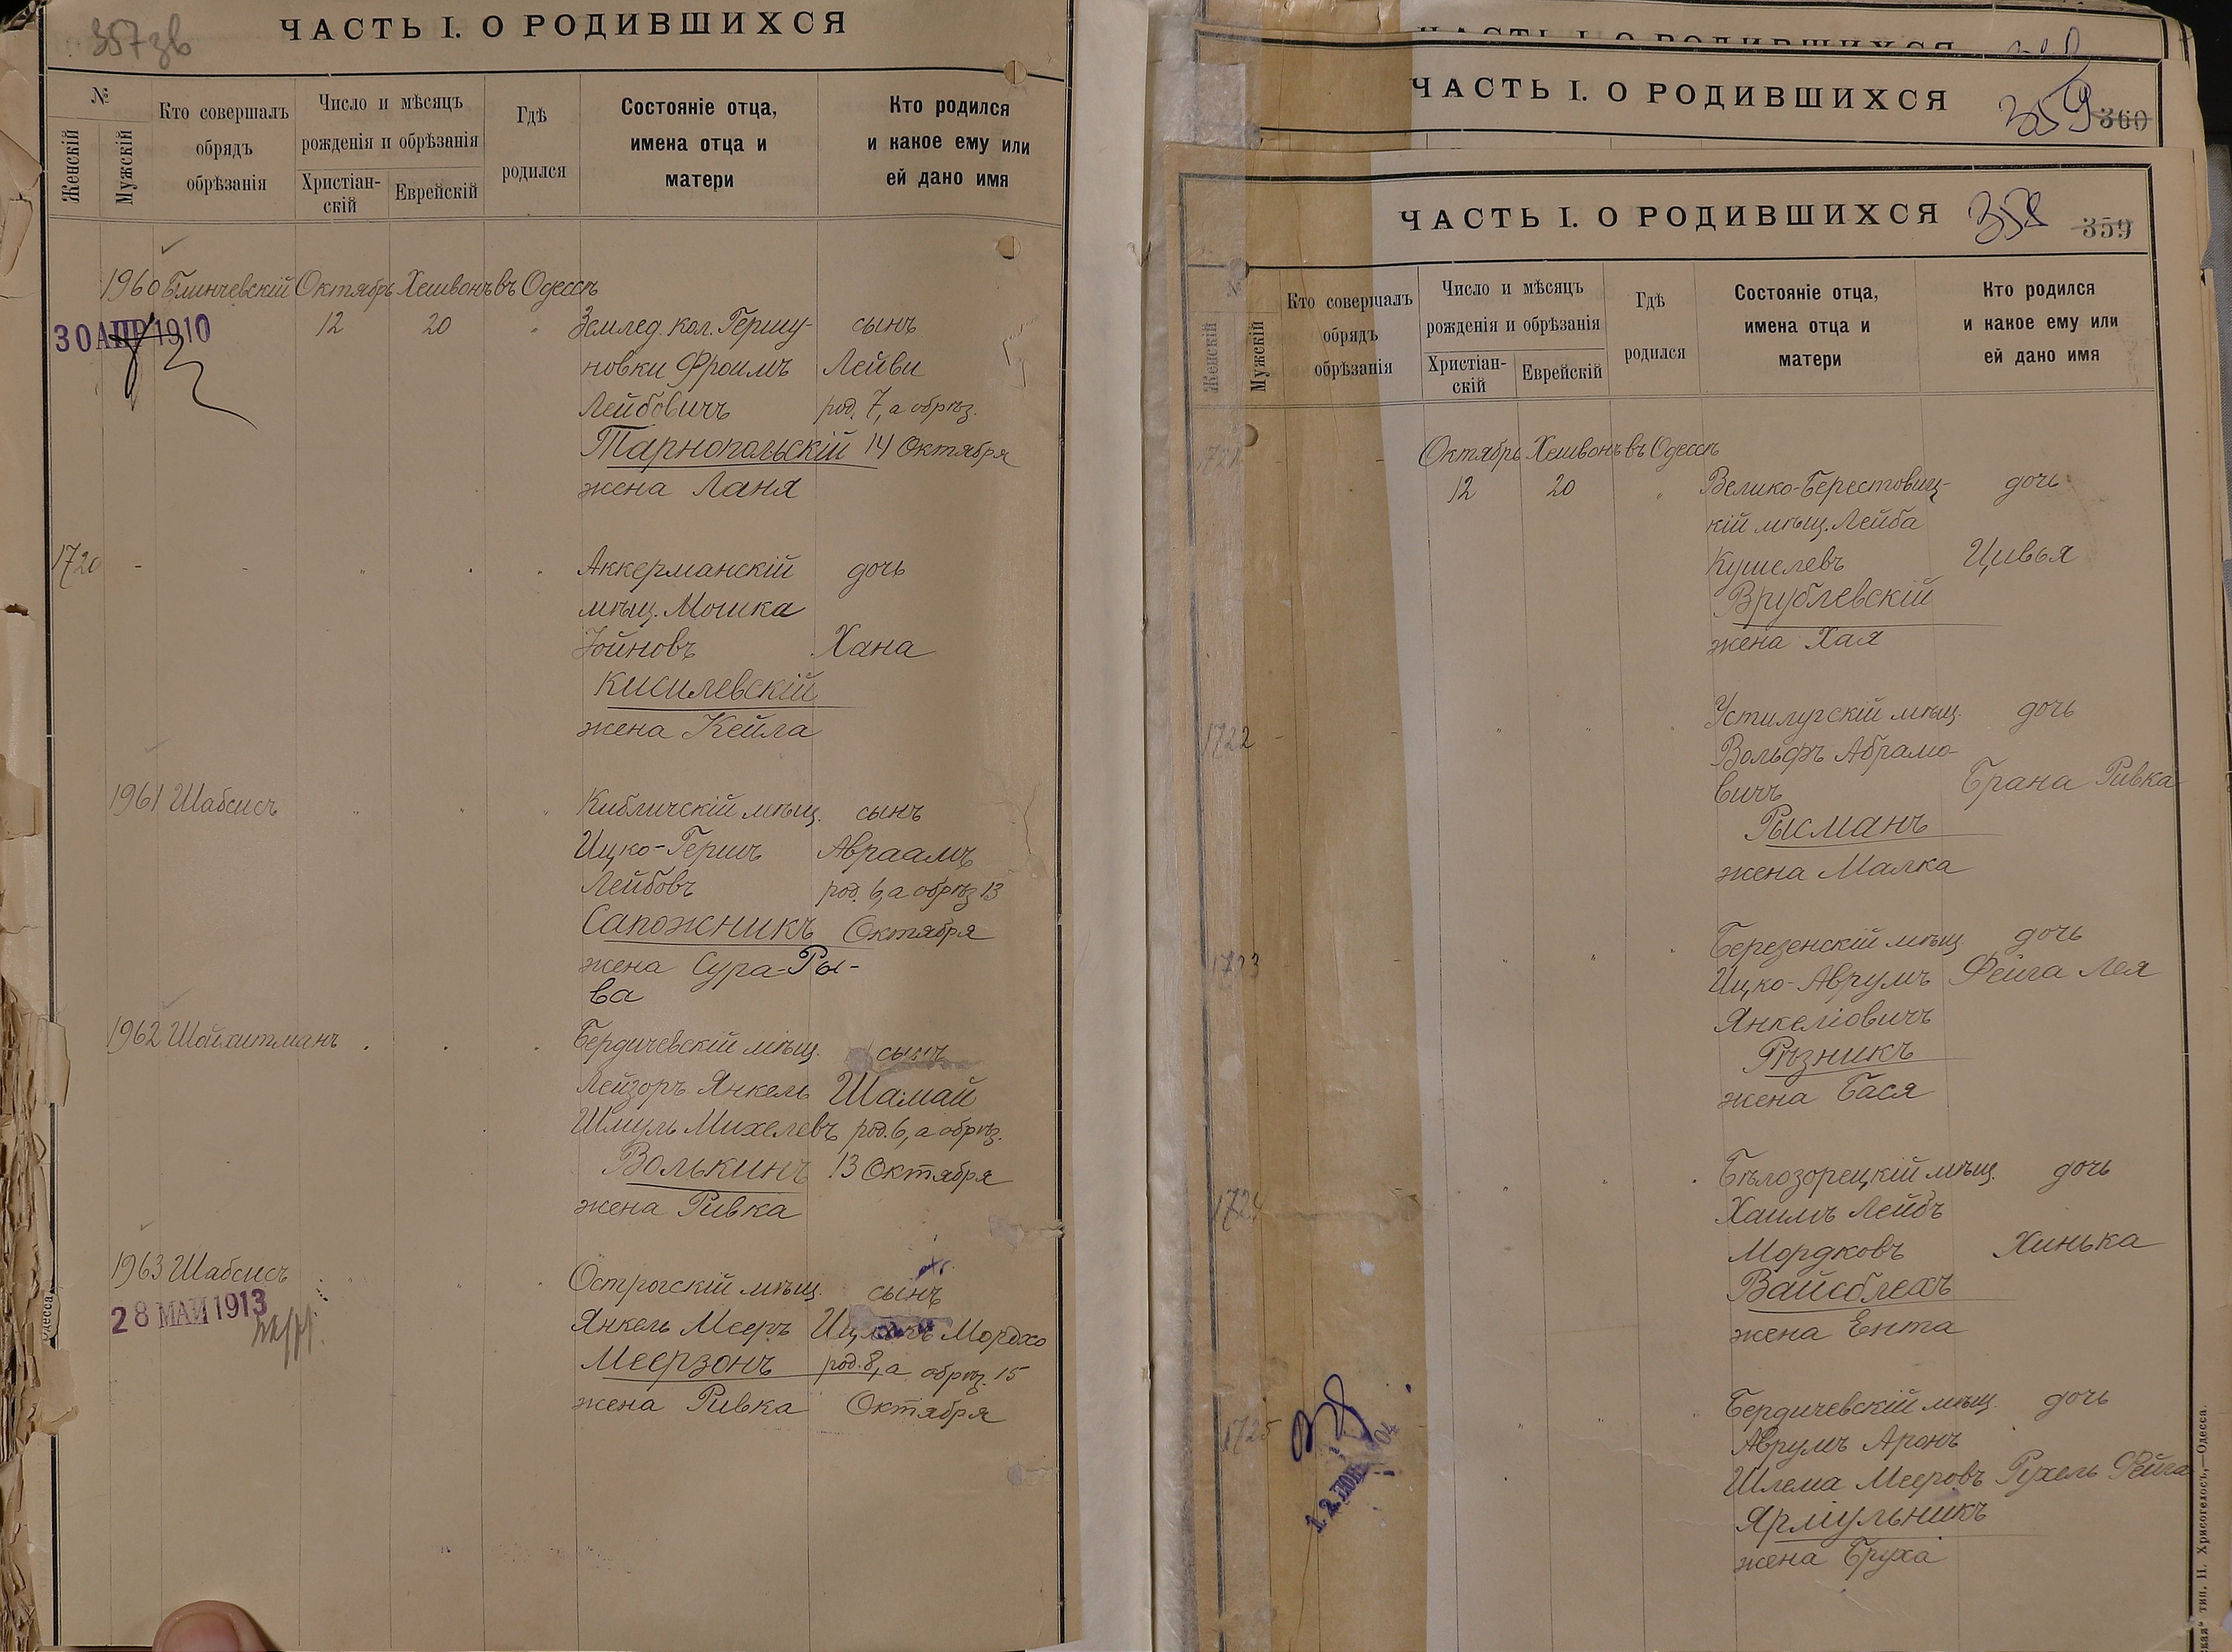 357 зв
ЧАСТЬ I. О РОДИВШИХСЯ
№
Женскій
Мужскій
Кто совершалъ
обрядъ
обрѣзанія
Число и мѣсяцъ
рожденія и обрѣзанія
Христіан-
скій
Еврейскій
Гдѣ
родился
Состояніе отца,
имена отца и
матери
Кто родился
и какое ему или
ей дано имя
1960 Октябрь Хешвонъ въ Одессѣ
30 АПР 1910
12 20 " Землед. кол. Гершу- сынъ
новки Фроимъ Лейви
Лейбовичъ род. 7, а обрѣз.
Тарнопольскій 14 Октября
жена Ланя
1720 - - " . . Аккерманскій дочь
мѣщ. Мошка
Іойновъ Хана
Кисилевскій
жена Кейла
1961 Шабсисъ " " " Кибличскій мѣщ. сынъ
Ицко-Гершъ Авраамъ
Лейбовъ род. 6, а обрѣз 13
Сапожникъ Октября
жена Сура-Ры-
ва
1962 Шойхитманъ . . . Бердичевскій мѣщ. сынъ
Лейзоръ Янкель Шамай
Шмуль Михелевъ род. 6, а обрѣз.
Волькинъ 13 Октября
жена Ривка
1963 Шабсисъ Острогскій мѣщ. сынъ
28 МАЙ 1913
Янкель Мееръ Ицхокъ Мордхо
Меерзонъ род. 8, а обрѣз. 15
жена Ривка Октября
Одесса
ЧАСТЬ I. О РОДИВШИХСЯ
ЧАСТЬ I. О РОДИВШИХСЯ 359 360
ЧАСТЬ I. О РОДИВШИХСЯ 358 359
№
Женскій
Мужскій
Кто совершалъ
обрядъ
обрѣзанія
Число и мѣсяцъ
рожденія и обрѣзанія
Христіан-
скій
Еврейскій
Гдѣ
родился
Состояніе отца,
имена отца и
матери
Кто родился
и какое ему или
ей дано имя
1721 - - Октябрь Хешвонъ въ Одессѣ
12 20 " Велико-Берестовиц- дочь
кій мѣщ. Лейба
Кушелевъ Цивья
Врублевскій
жена Хая
1722 - - " " . Устилугскій мѣщ. дочь
Вольфъ Абрамо-
вичъ Брана Ривка
Рысманъ
жена Малка
1723 - " " . Березенскій мѣщ. дочь
Ицко-Аврумъ Фейга Лея
Янкеліовичъ
Рѣзникъ
жена Бася
1724 " " . Бѣлозорецкій мѣщ. дочь
Хаимъ Лейбъ
Мордковъ Хинька
Вайсблехъ
жена Ента
1725 " " " Бердичевскій мѣщ. дочь
Аврумъ Аронъ
Шлема Мееровъ Рухель Фейга
Ярмульникъ
жена Бруха
тип. И. Хрисогелосъ,—Одесса.